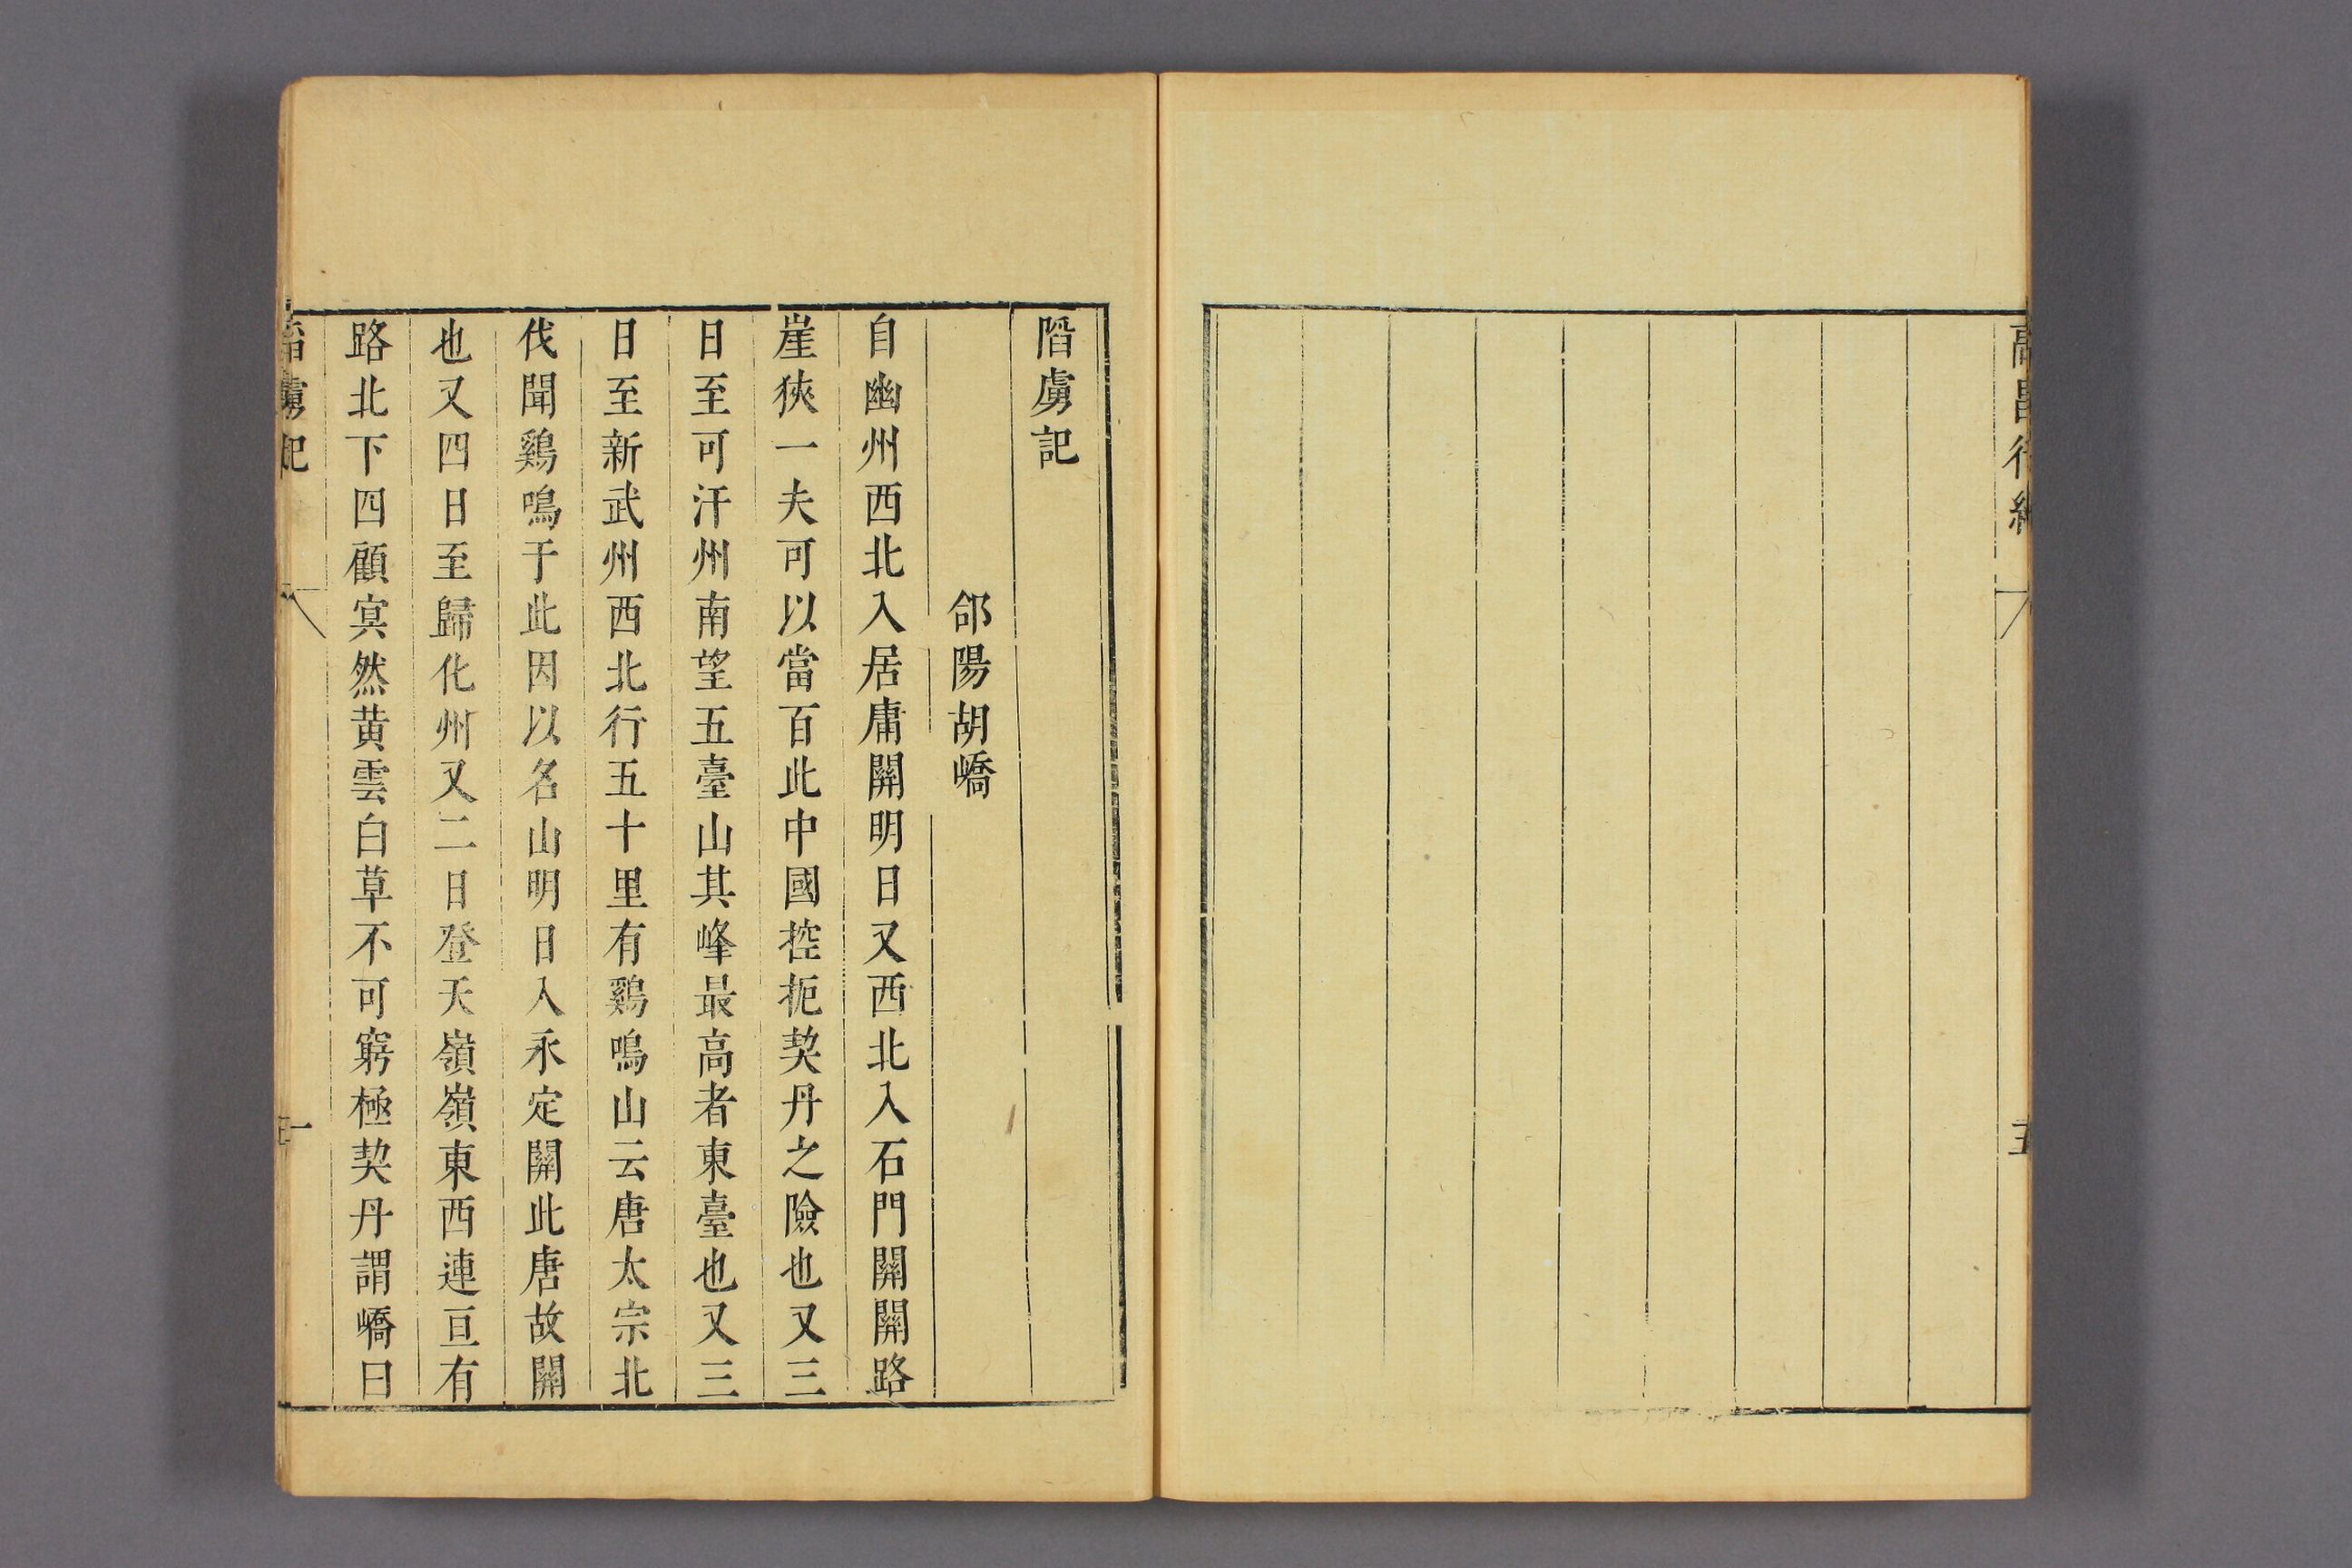 高昌行紀
陷虜記
郃陽胡嶠
自幽州西北入居庸關明日又西北入石門關關路
崖狹一夫可以當百此中國控扼契丹之險也又三
日至可汗州南望五臺山其峰最高者東臺也又三
日至新武州西北行五十里有鷄鳴山云唐太宗北
伐聞鷄鳴于此因以名山明日入永定關此唐故關
也又四日至歸化州又二日登天嶺嶺東西連亘有
路北下四顧冥然黄雲白草不可窮極契丹謂嶠曰
陷虜記
一